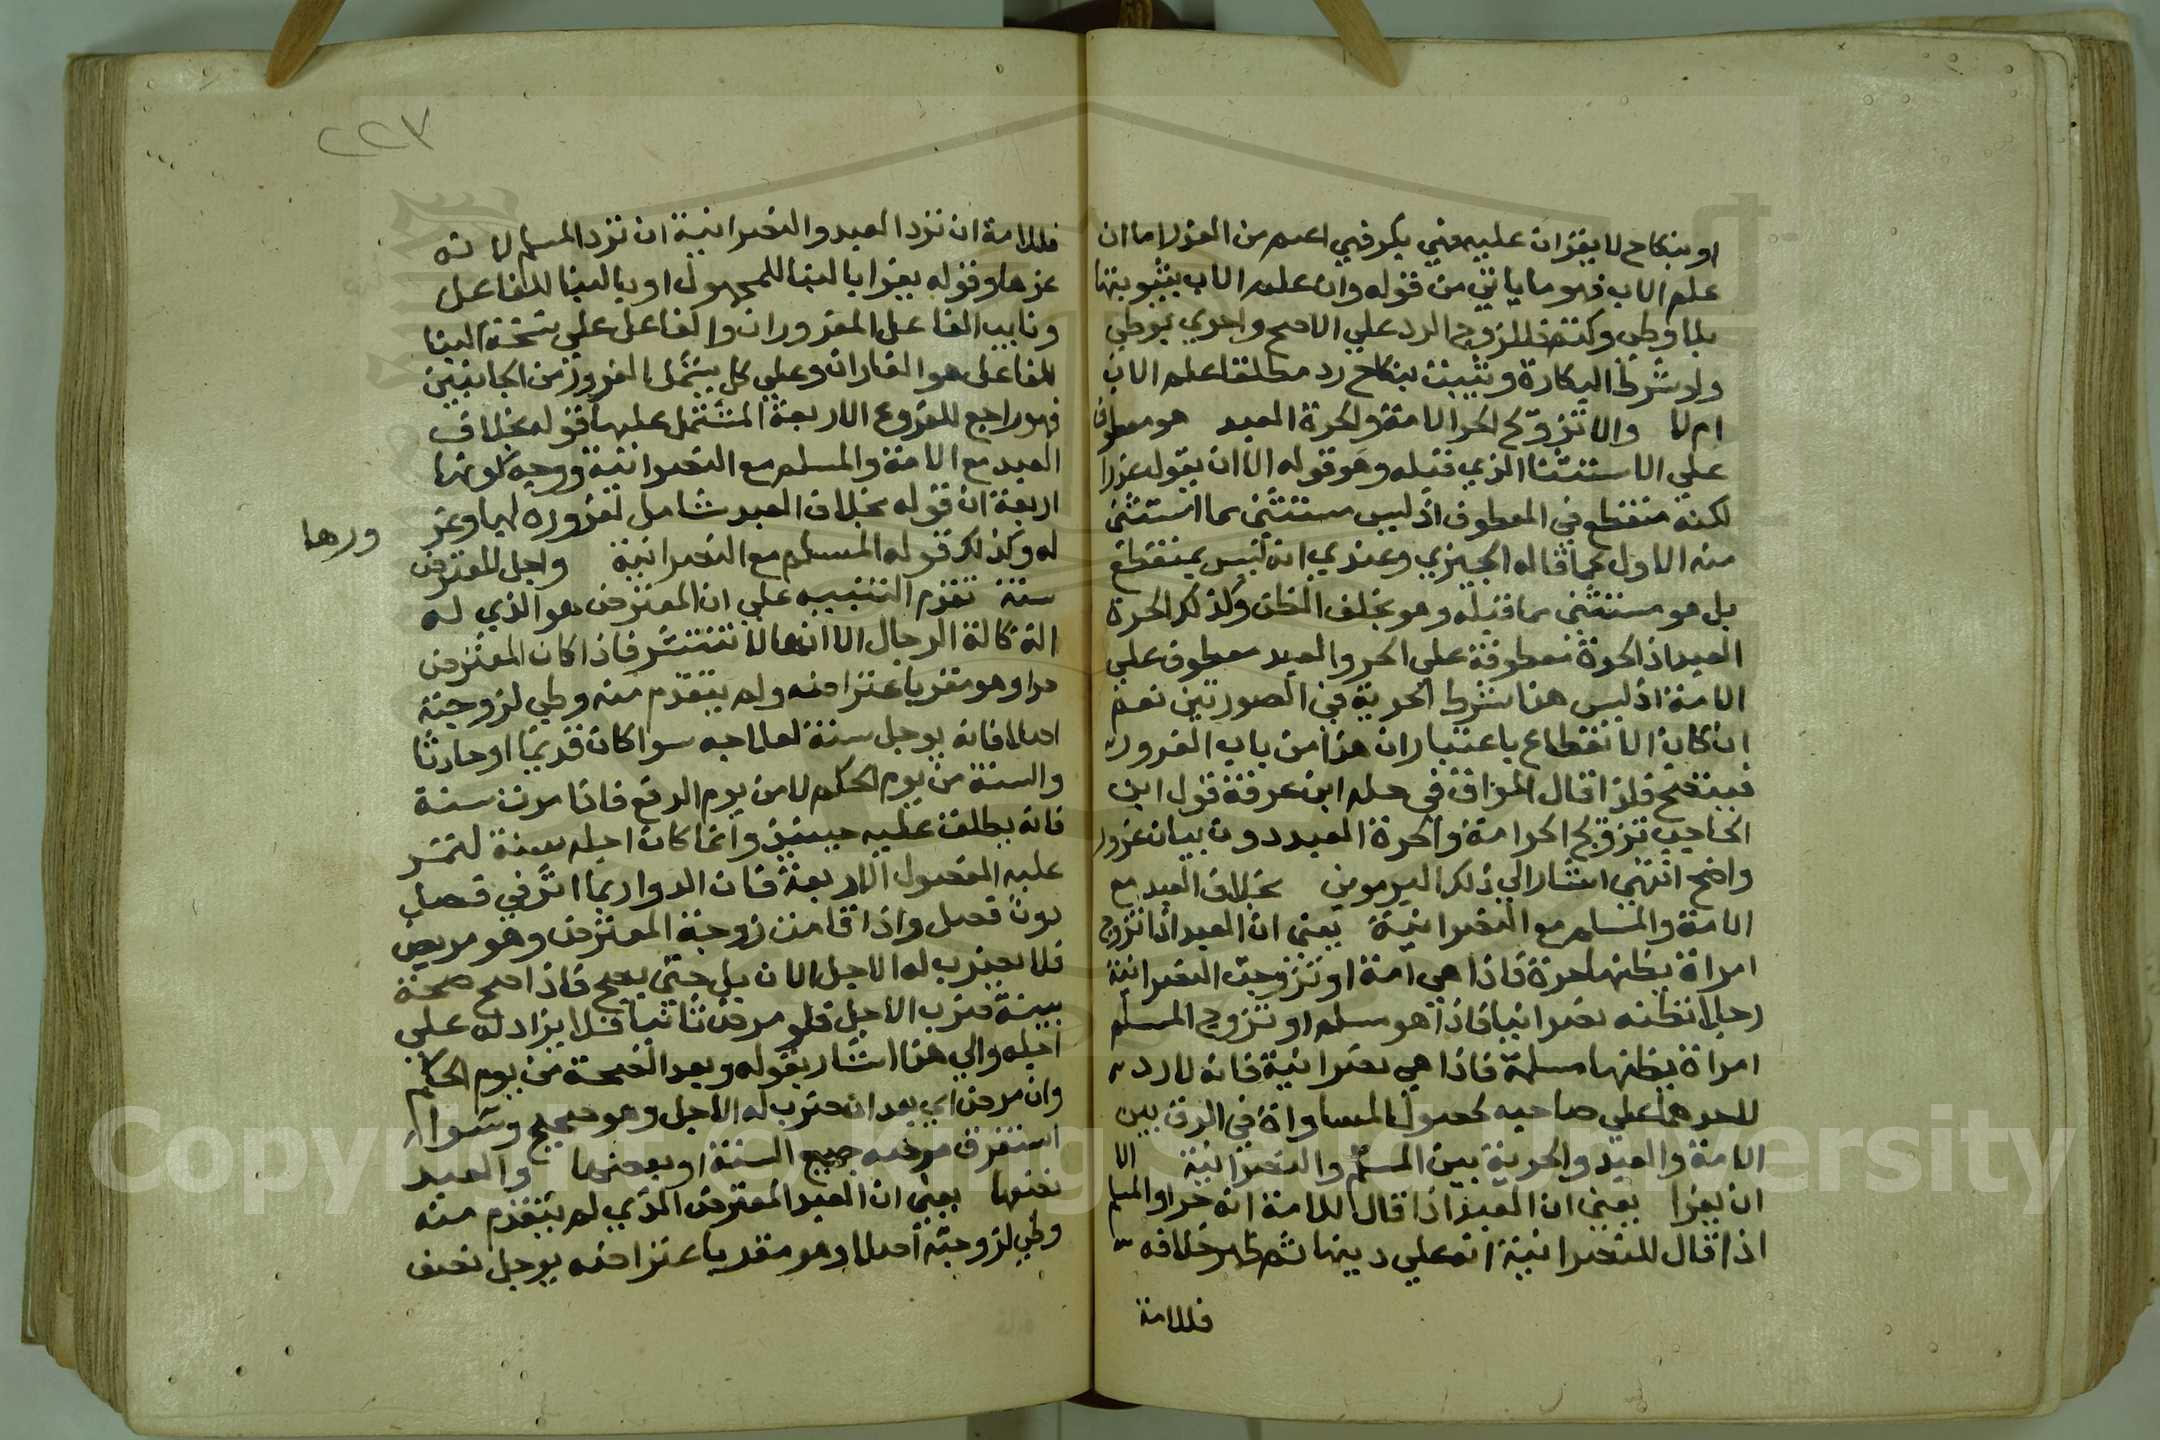 او بنكاح لا يقران عليه فهي بكر فهي اعم من العذرا اما ان
علم الاب فهو ما ياتي من قوله وان علم الاب بثيوبتها
بلا وطي وكتم فللزوج الرد علي الاصح واحري بوطي
ولو شرط البكارة وثيبت بنكاح رد مطلقا علم الاب
ام لا والا تزوج الحر الامة والحرة العبد هو معطوف
علي الاستثنا الذي قبله وهو قوله الا ان يقول عذرا
لكنه منقطع في المعطوف اذ ليس مستثني مما استثني
منه الاول كما قاله الجيزي وعندي انه ليس بمنقطع
بل هو مستثني مما قبله وهو بخلف الظن وكذلك الحرة
العبد اذ الحرة معطوفة علي الحر والعبد معطوف علي
الامة اذ ليس هنا شرط الحرية في الصورتين نعم
ان كان الانقطاع باعتبار ان هذا من باب الغرور
فيتضح فلذا قال المواق في حله ابن عرفة قول ابن
الحاجب تزوج الحر امة والحرة العبد دون بيان غرور
واضح انتهي اشار الي ذلك البرموني بخلاف العبد مع
الامة والمسلم مع النصرانية يعني ان العبد اذا تزوج
امراة يظنها حرة فاذا هي امة او تزوجت النصرانية
رجلا تظنه نصرانيا فاذا هو مسلم او تزوج المسلم
امراة يظنها مسلمة فاذا هي نصرانية فانه لا رد
لاحدهما علي صاحبه لحصول المساواة في الرق بين
الامة والعبد والحرية بين المسلم والنصرانية الا
ان يغرا يعني ان العبد اذا قال للامة انه حر او المسلم
اذا قال للنصرانية انه علي دينها ثم ظهر خلافه
فللامة
٢٢٧
فللامة ان ترد العبد والنصرانية ان ترد المسلم لانه
غرها وقوله يغرا بالبنا للمجهول او بالبنا للفاعل
ونايب الفاعل المغروران والفاعل علي نسخة البنا
للفاعل هو الغاران وعلي كل يشمل الغرور من الجانبين
فهو راجع للفروع الاربعة المشتمل عليها قوله بخلاف
العبد مع الامة والمسلم مع النصرانية ووجه كونها
اربعة ان قوله بخلاف العبد شامل لغروره لها وغر
ورها
له وكذلك قوله المسلم مع النصرانية واجل المعترض
سنة تقدم التنبيه علي ان المعترض هو الذي له
الة كالة الرجال الا انها لا تنتشر فاذا كان المعترض
حرا وهو مقر باعتراضه ولم يتقدم منه وطي لزوجته
اصلا فانه يوجل سنة لعلاجه سوا كان قديما او حادثا
والسنة من يوم الحكم لا من يوم الرفع فاذا مرت سنة
فانه يطلق عليه حينيذ وانما كان اجله سنة لتمر
عليه الفصول الاربعة فان الدوا ربما اثر في فصل
دون فصل واذا قامت زوجة المعترض وهو مريض
فلا يضرب له الاجل الان بل حتي يصح فاذا صح صحة
بينة ضرب الاجل فلو مرض ثانيا فلا يزاد له علي
اجله والي هذا اشار بقوله وبعد الصحة من يوم الحكم
وان مرض اي بعد ان ضرب له الاجل وهو صحيح وسوا
استغرق مرضه جميع السنة او بعضها والعبد
نصفها يعني ان العبد المعترض الذي لم يتقدم منه
وطي لزوجته اصلا وهو مقر باعتراضه يوجل نصف